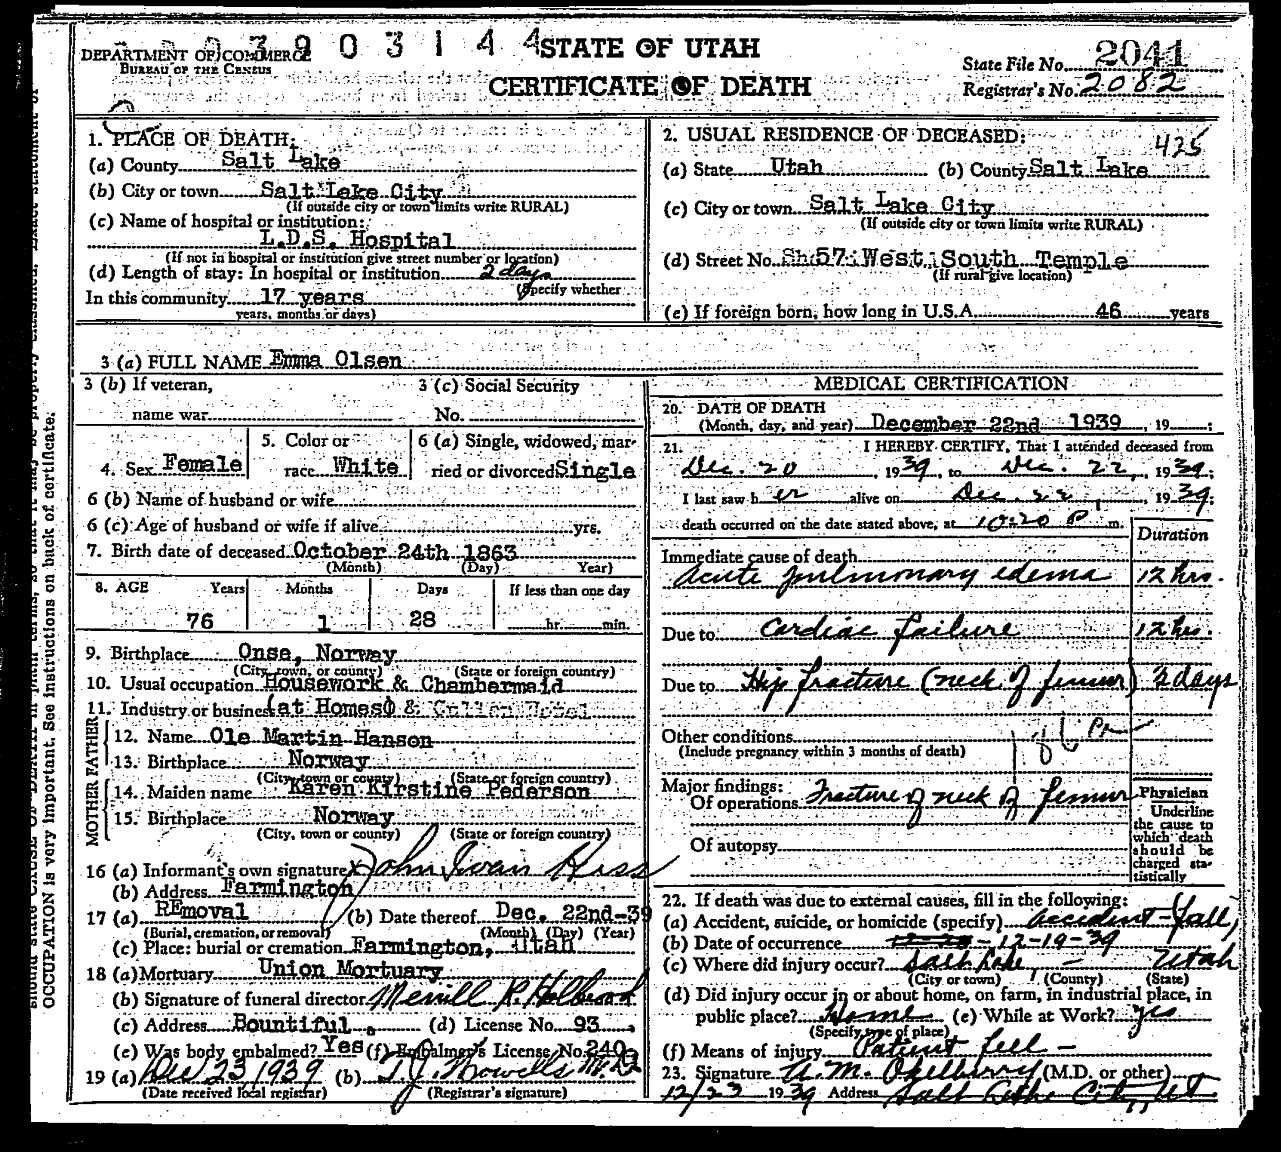 3 9 0 3 1 4 4
STATE OF UTAH
CERTIFICATE OF DEATH
DEPARTMENT OF COMMERCE
BUREAU OF THE CENSUS
State File No. 2041
Registrar's No. 2082
1. PLACE OF DEATH:
(a) County Salt Lake
(b) City or town Salt Lake City
(If outside city or town limits write RURAL)
(c) Name of hospital or institution:
L.D.S. Hospital
(If not in hospital or institution give street number or location)
(d) Length of stay: In hospital or institution 2 days
(Specify whether
In this community 17 years
years, months or days)
2. USUAL RESIDENCE OF DECEASED:
425
(a) State Utah (b) County Salt Lake
(c) City or town Salt Lake City
(If outside city or town limits write RURAL)
(d) Street No. 57 West South Temple
(If rural give location)
(e) If foreign born, how long in U.S.A. 46 years
3 (a) FULL NAME Emma Olsen
3 (b) If veteran,
name war
3 (c) Social Security
No.
4. Sex Female
5. Color or
race White
6 (a) Single, widowed, mar-
ried or divorced Single
6 (b) Name of husband or wife
6 (c) Age of husband or wife if alive yrs.
7. Birth date of deceased October 24th 1863
(Month) (Day) Year)
8. AGE Years Months Days If less than one day
76 1 28 hr. min.
9. Birthplace Onse, Norway
(City, town, or county) (State or foreign country)
10. Usual occupation Housework & Chambermaid
11. Industry or business (at Homes) & Cullen Hotel
FATHER
12. Name Ole Martin Hanson
13. Birthplace Norway
(City, town or county) (State or foreign country)
MOTHER
14. Maiden name Karen Kirstine Pederson
15. Birthplace Norway
(City, town or county) (State or foreign country)
16 (a) Informant's own signature x John Ivan Hess
(b) Address Farmington
17 (a) REmoval (b) Date thereof Dec. 22nd-39
(Burial, cremation, or removal) (Month) (Day) (Year)
(c) Place: burial or cremation Farmington, Utah
18 (a) Mortuary Union Mortuary
(b) Signature of funeral director Merrill R. Holbrook
(c) Address Bountiful. (d) License No. 93.
(e) Was body embalmed? Yes (f) Embalmer's License No. 240
19 (a) Dec 23 1939 (b) T. J. Howells M.D.
(Date received local registrar) (Registrar's signature)
MEDICAL CERTIFICATION
20. DATE OF DEATH
(Month, day, and year) December 22nd 1939, 19 ;
21. I HEREBY CERTIFY, That I attended deceased from
Dec. 20, 1939, to Dec. 22, 1939;
I last saw her alive on Dec. 22, 1939;
death occurred on the date stated above, at 10:20 P m.
Duration
Immediate cause of death
Acute pulmonary edema 12 hrs.
Due to Cardiac failure 12 hrs.
Due to Hip fracture (neck of femur) 3 days
Other conditions
(Include pregnancy within 3 months of death)
186
Major findings:
Of operations Fracture of neck of femur
Of autopsy
Physician
Underline
the cause to
which death
should be
charged sta-
tistically
22. If death was due to external causes, fill in the following:
(a) Accident, suicide, or homicide (specify) accident-fall,
(b) Date of occurrence 12-20-12-19-39
(c) Where did injury occur? Salt Lake, - Utah
(City or town) (County) (State)
(d) Did injury occur in or about home, on farm, in industrial place, in
public place? Home (e) While at Work? yes
(Specify type of place)
(f) Means of injury Patient fell -
23. Signature A. M. Okelberry (M.D. or other)
12/23 1939 Address Salt Lake City, Ut.
OCCUPATION is very important. See instructions on back of certificate.